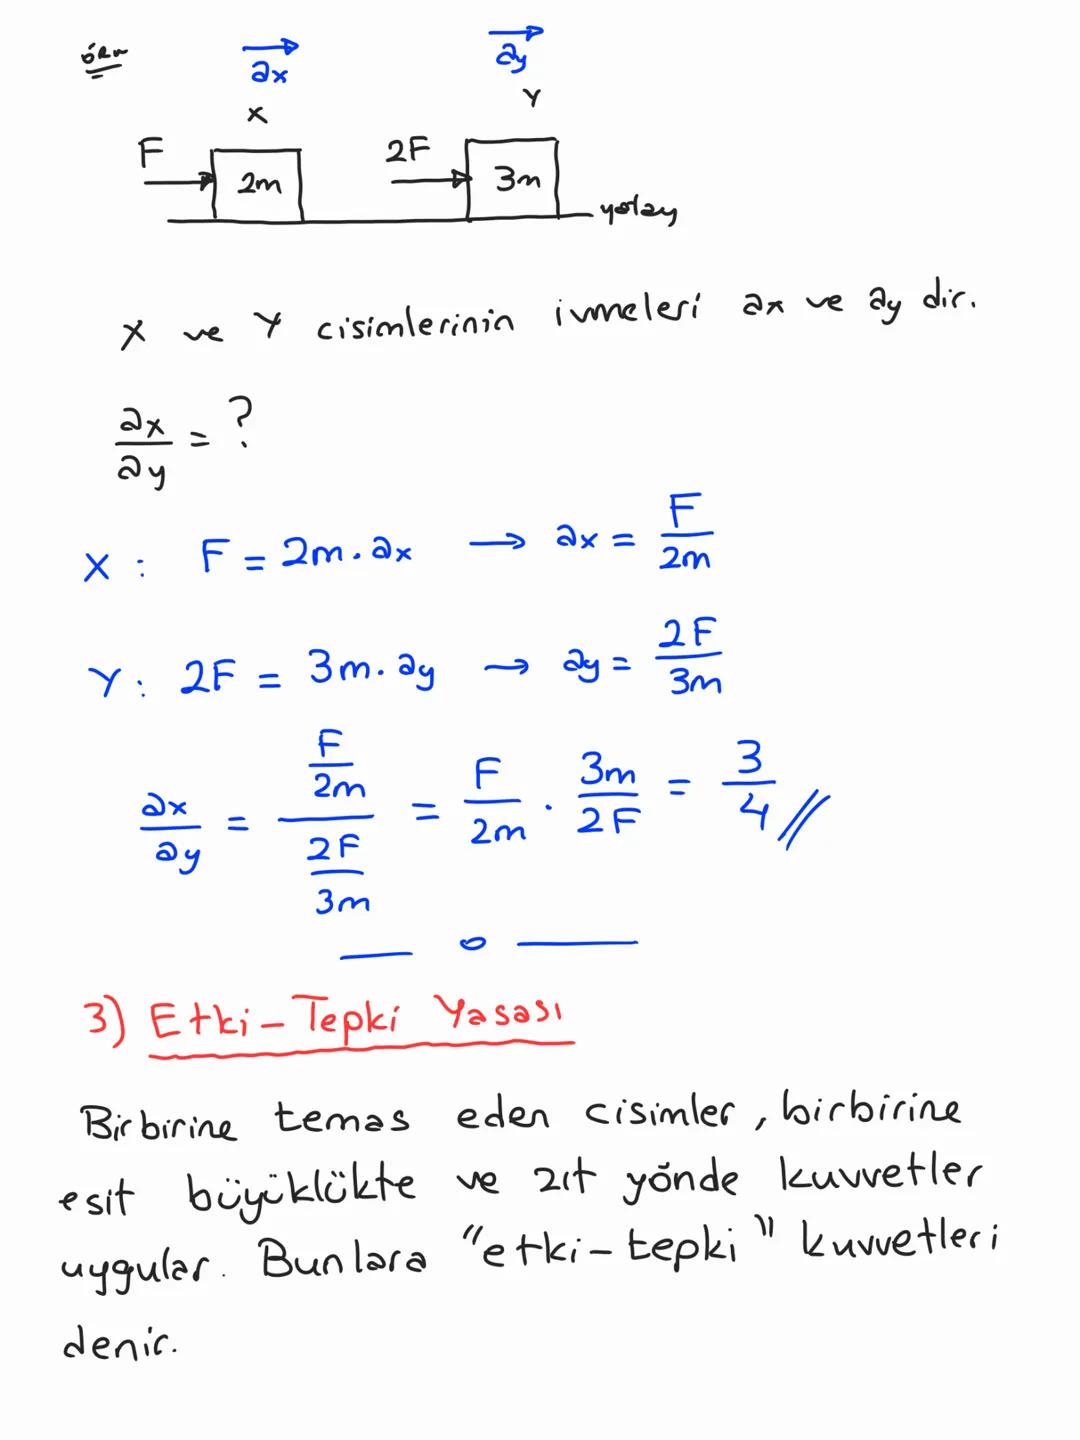 örn
ax ay
X Y
F 2m 2F 3m
yatay
X ve Y cisimlerinin ivmeleri ax ve ay dir.
ax/ay = ?
X : F = 2m . ax → ax = F/2m
Y : 2F = 3m . ay → ay = 2F/3m
ax/ay = (F/2m)/(2F/3m) = F/2m . 3m/2F = 3/4 //
3) Etki - Tepki Yasası
Birbirine temas eden cisimler, birbirine
eşit büyüklükte ve zıt yönde kuvvetler
uygular. Bunlara "etki - tepki" kuvvetleri
denir.